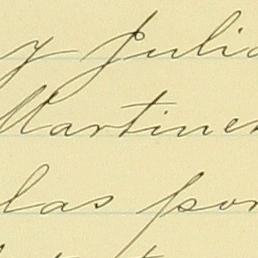 y Julia
Martinez
las por